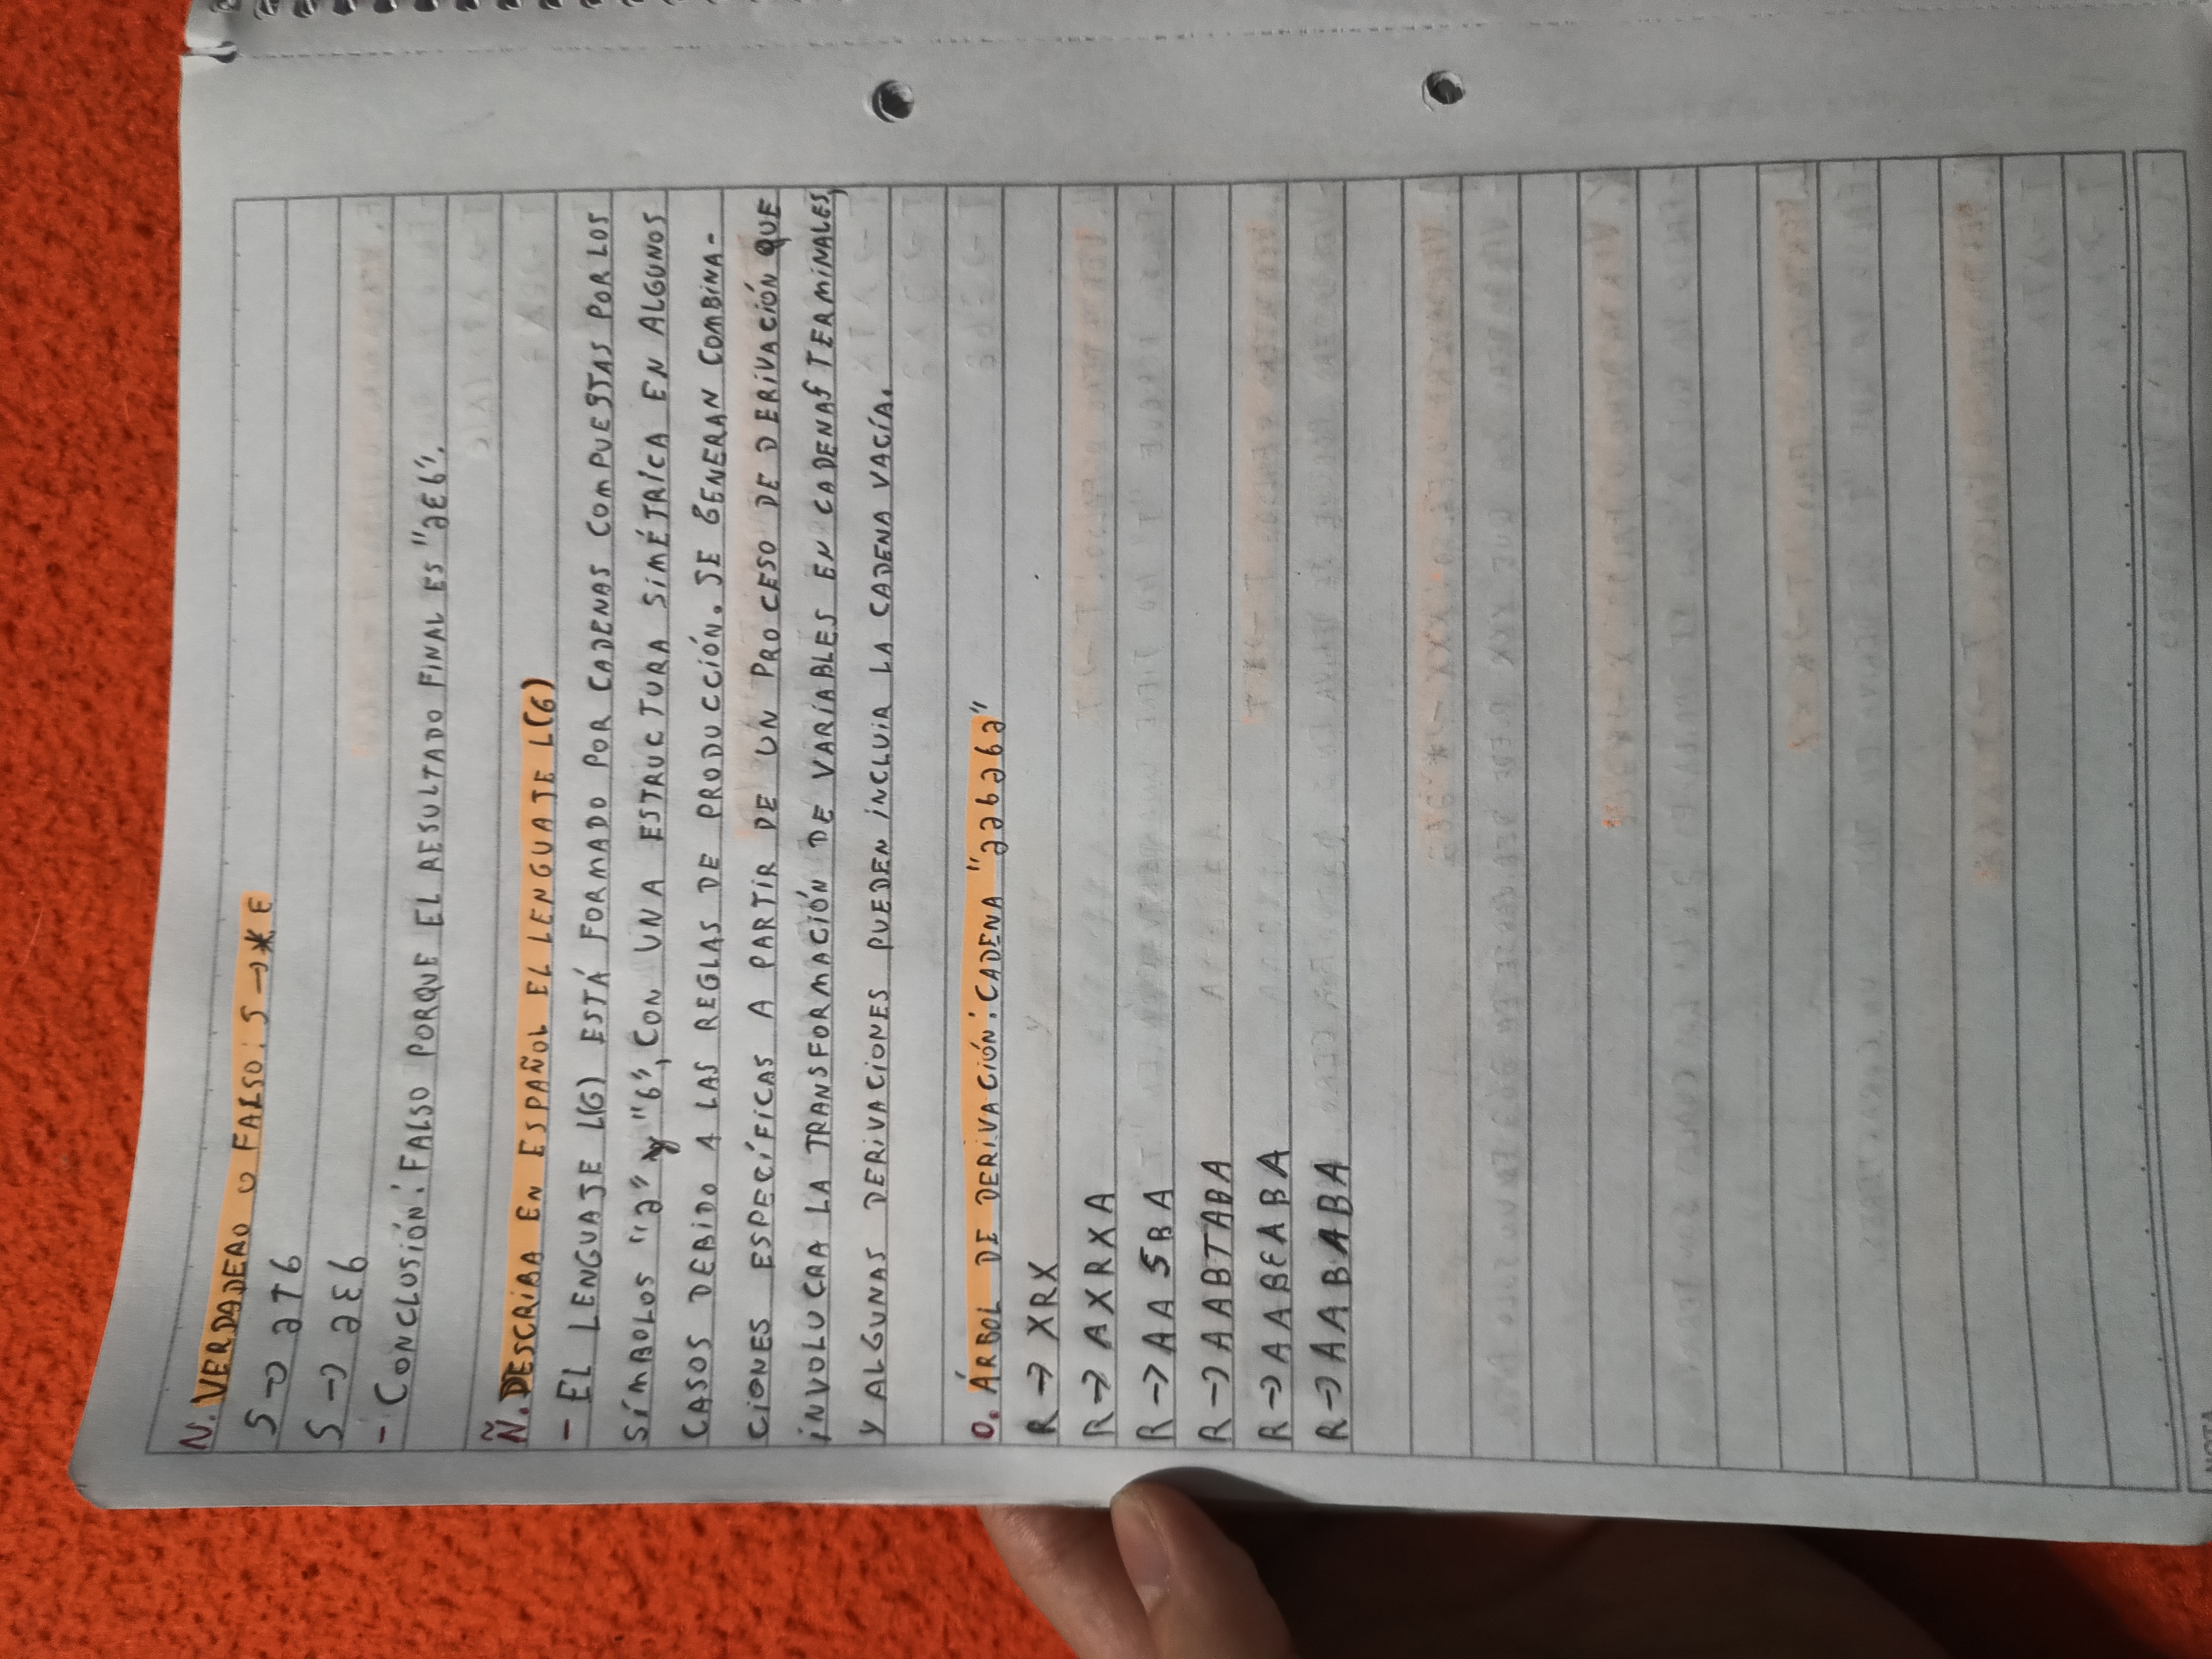 N. VERDADERO O FALSO: S → * ε
S → aTb
S → aεb
- CONCLUSIÓN: FALSO PORQUE EL RESULTADO FINAL ES "aεb".
Ñ. DESCRIBA EN ESPAÑOL EL LENGUAJE L(G)
- EL LENGUAJE L(G) ESTÁ FORMADO POR CADENAS COMPUESTAS POR LOS
SÍMBOLOS "a" y "b", CON UNA ESTRUCTURA SIMÉTRICA EN ALGUNOS
CASOS DEBIDO A LAS REGLAS DE PRODUCCIÓN. SE GENERAN COMBINA-
CIONES ESPECÍFICAS A PARTIR DE UN PROCESO DE DERIVACIÓN QUE
INVOLUCRA LA TRANSFORMACIÓN DE VARIABLES EN CADENAS TERMINALES,
Y ALGUNAS DERIVACIONES PUEDEN INCLUIR LA CADENA VACÍA.
O. ÁRBOL DE DERIVACIÓN: CADENA "aababa"
R → XRX
R → AXRXA
R → AASBA
R → AABTABA
R → AABεABA
R → AABABA
NOTA